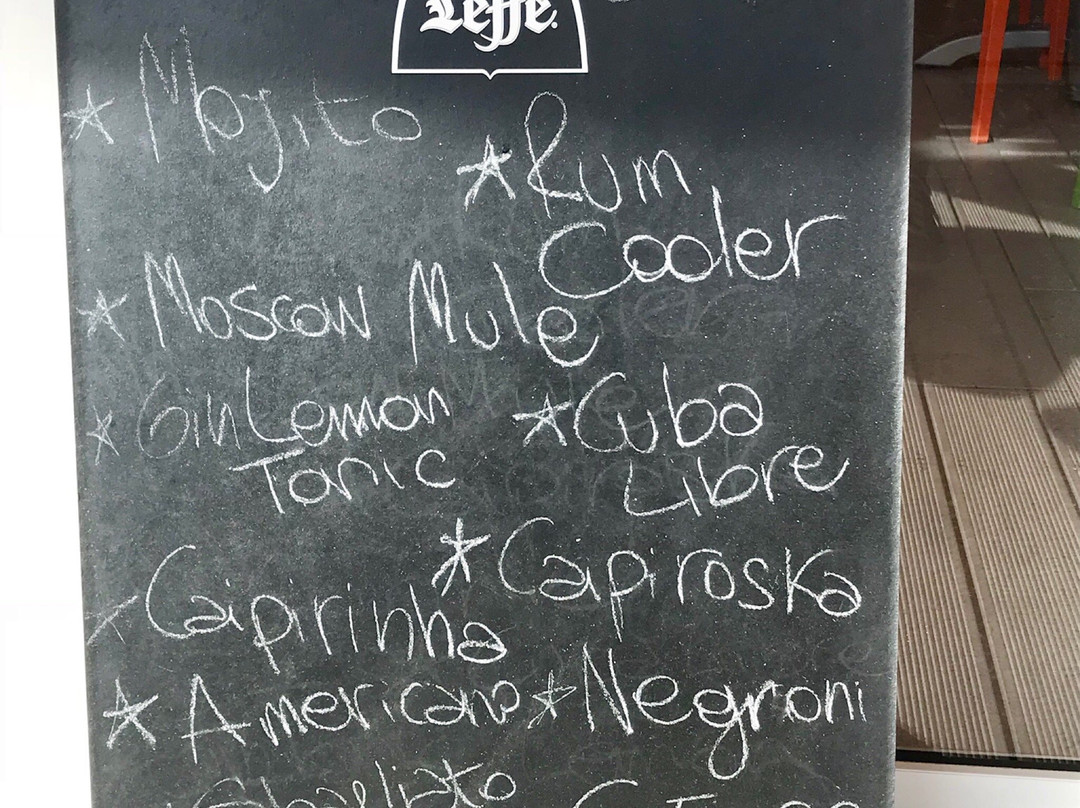 Leffe.
* Mojito
* Rum
Cooler
* Moscow Mule
* Gin Lemon
Tonic
* Cuba
Libre
* Caipirinha
* Capiroska
* Americano * Negroni